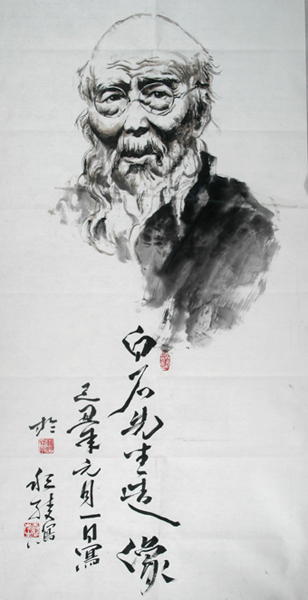 白石先生造像
己丑年元月一日寫
於 寫